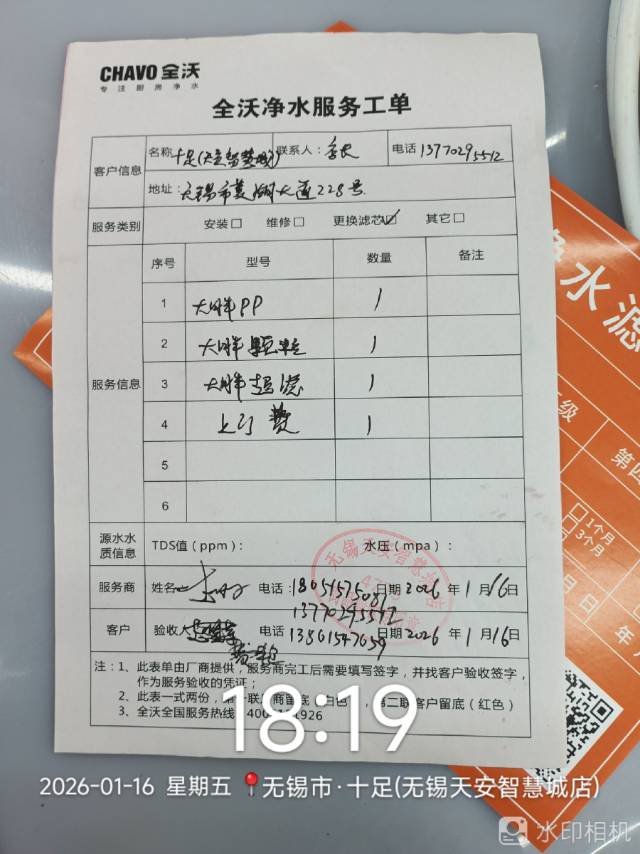 CHAVO 全沃
专注厨房净水
全沃净水服务工单
客户信息
名称 十足(天安智慧城) 联系人: 李 电话 13770295512
地址: 无锡市菱湖大道228号
服务类别 安装□ 维修□ 更换滤芯☑ 其它□
服务信息
序号 型号 数量 备注
1 大胖PP 1
2 大胖颗粒 1
3 大胖超滤 1
4 上门费 1
5
6
源水水质信息 TDS值(ppm): 水压(mpa):
服务商 姓名 电话: 18051575081 日期 2026 年 1 月 16 日
13770295512
客户 验收人 电话 13861547659 日期 2026 年 1 月 16 日
无锡天安智慧城店
注:1、此表单由厂商提供,服务商完工后需要填写签字,并找客户验收签字,
作为服务验收的凭证;
2、此表一式两份,第一联 商留底(白色),第二联客户留底(红色)
3、全沃全国服务热线 400 1926
18:19
2026-01-16 星期五 无锡市·十足(无锡天安智慧城店)
水印相机
净水滤
级
第四
□1个月
□3个月
日